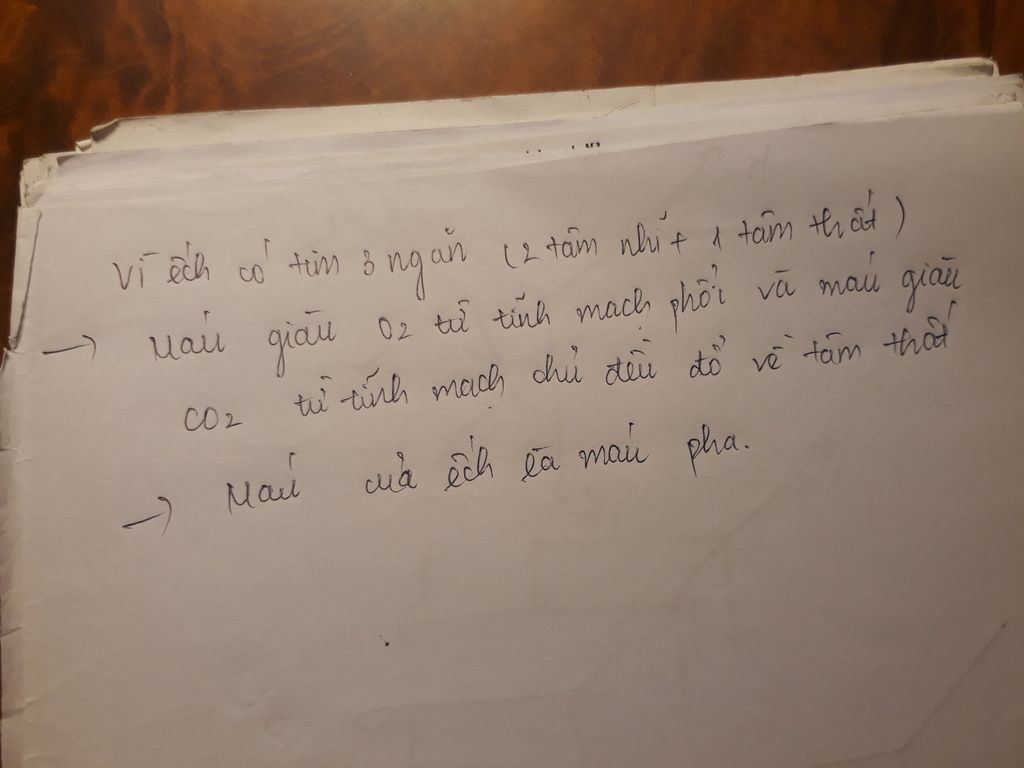 Vì ếch có tim 3 ngăn (2 tâm nhĩ + 1 tâm thất)
→ Máu giàu O2 từ tĩnh mạch phổi và máu giàu
CO2 từ tĩnh mạch chủ đều đổ về tâm thất
→ Máu của ếch là máu pha.